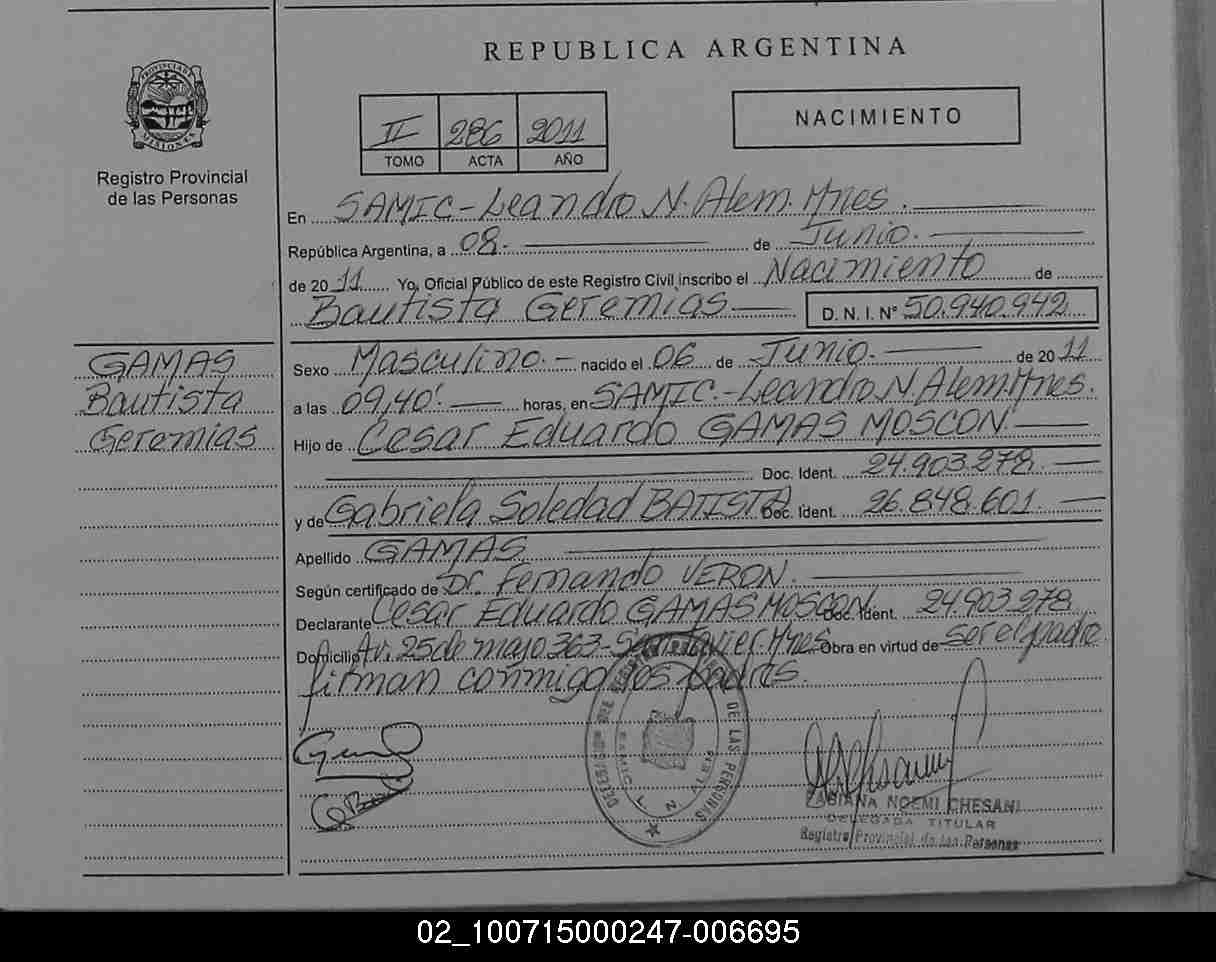 REPUBLICA ARGENTINA
II 286 2011
TOMO ACTA AÑO
NACIMIENTO
PROVINCIA DE MISIONES
Registro Provincial
de las Personas
En SAMIC-Leandro N. Alem. Mnes.
República Argentina, a 08. de Junio.
de 2011 Yo, Oficial Público de este Registro Civil inscribo el Nacimiento de
Bautista Geremias D. N. I. N° 50.940.942
GAMAS
Bautista
Geremias
Sexo Masculino.- nacido el 06 de Junio. de 2011
a las 09,40' horas, en SAMIC.-Leandro N. Alem. Mnes.
Hijo de Cesar Eduardo GAMAS MOSCON
Doc. Ident. 24.903.278
y de Gabriela Soledad BATISTA Doc. Ident. 26.848.601
Apellido GAMAS
Según certificado de Dr. Fernando VERON.
Declarante Cesar Eduardo GAMAS MOSCON Doc. Ident. 24.903.278
Domicilio Av. 25 de mayo 363-San Javier-Mnes Obra en virtud de ser el padre
firman conmigo los padres.
DE LAS PERSONAS
FABIANA NOEMI CHESANI
DELEGADA TITULAR
Registro Provincial de las Personas
02_100715000247-006695